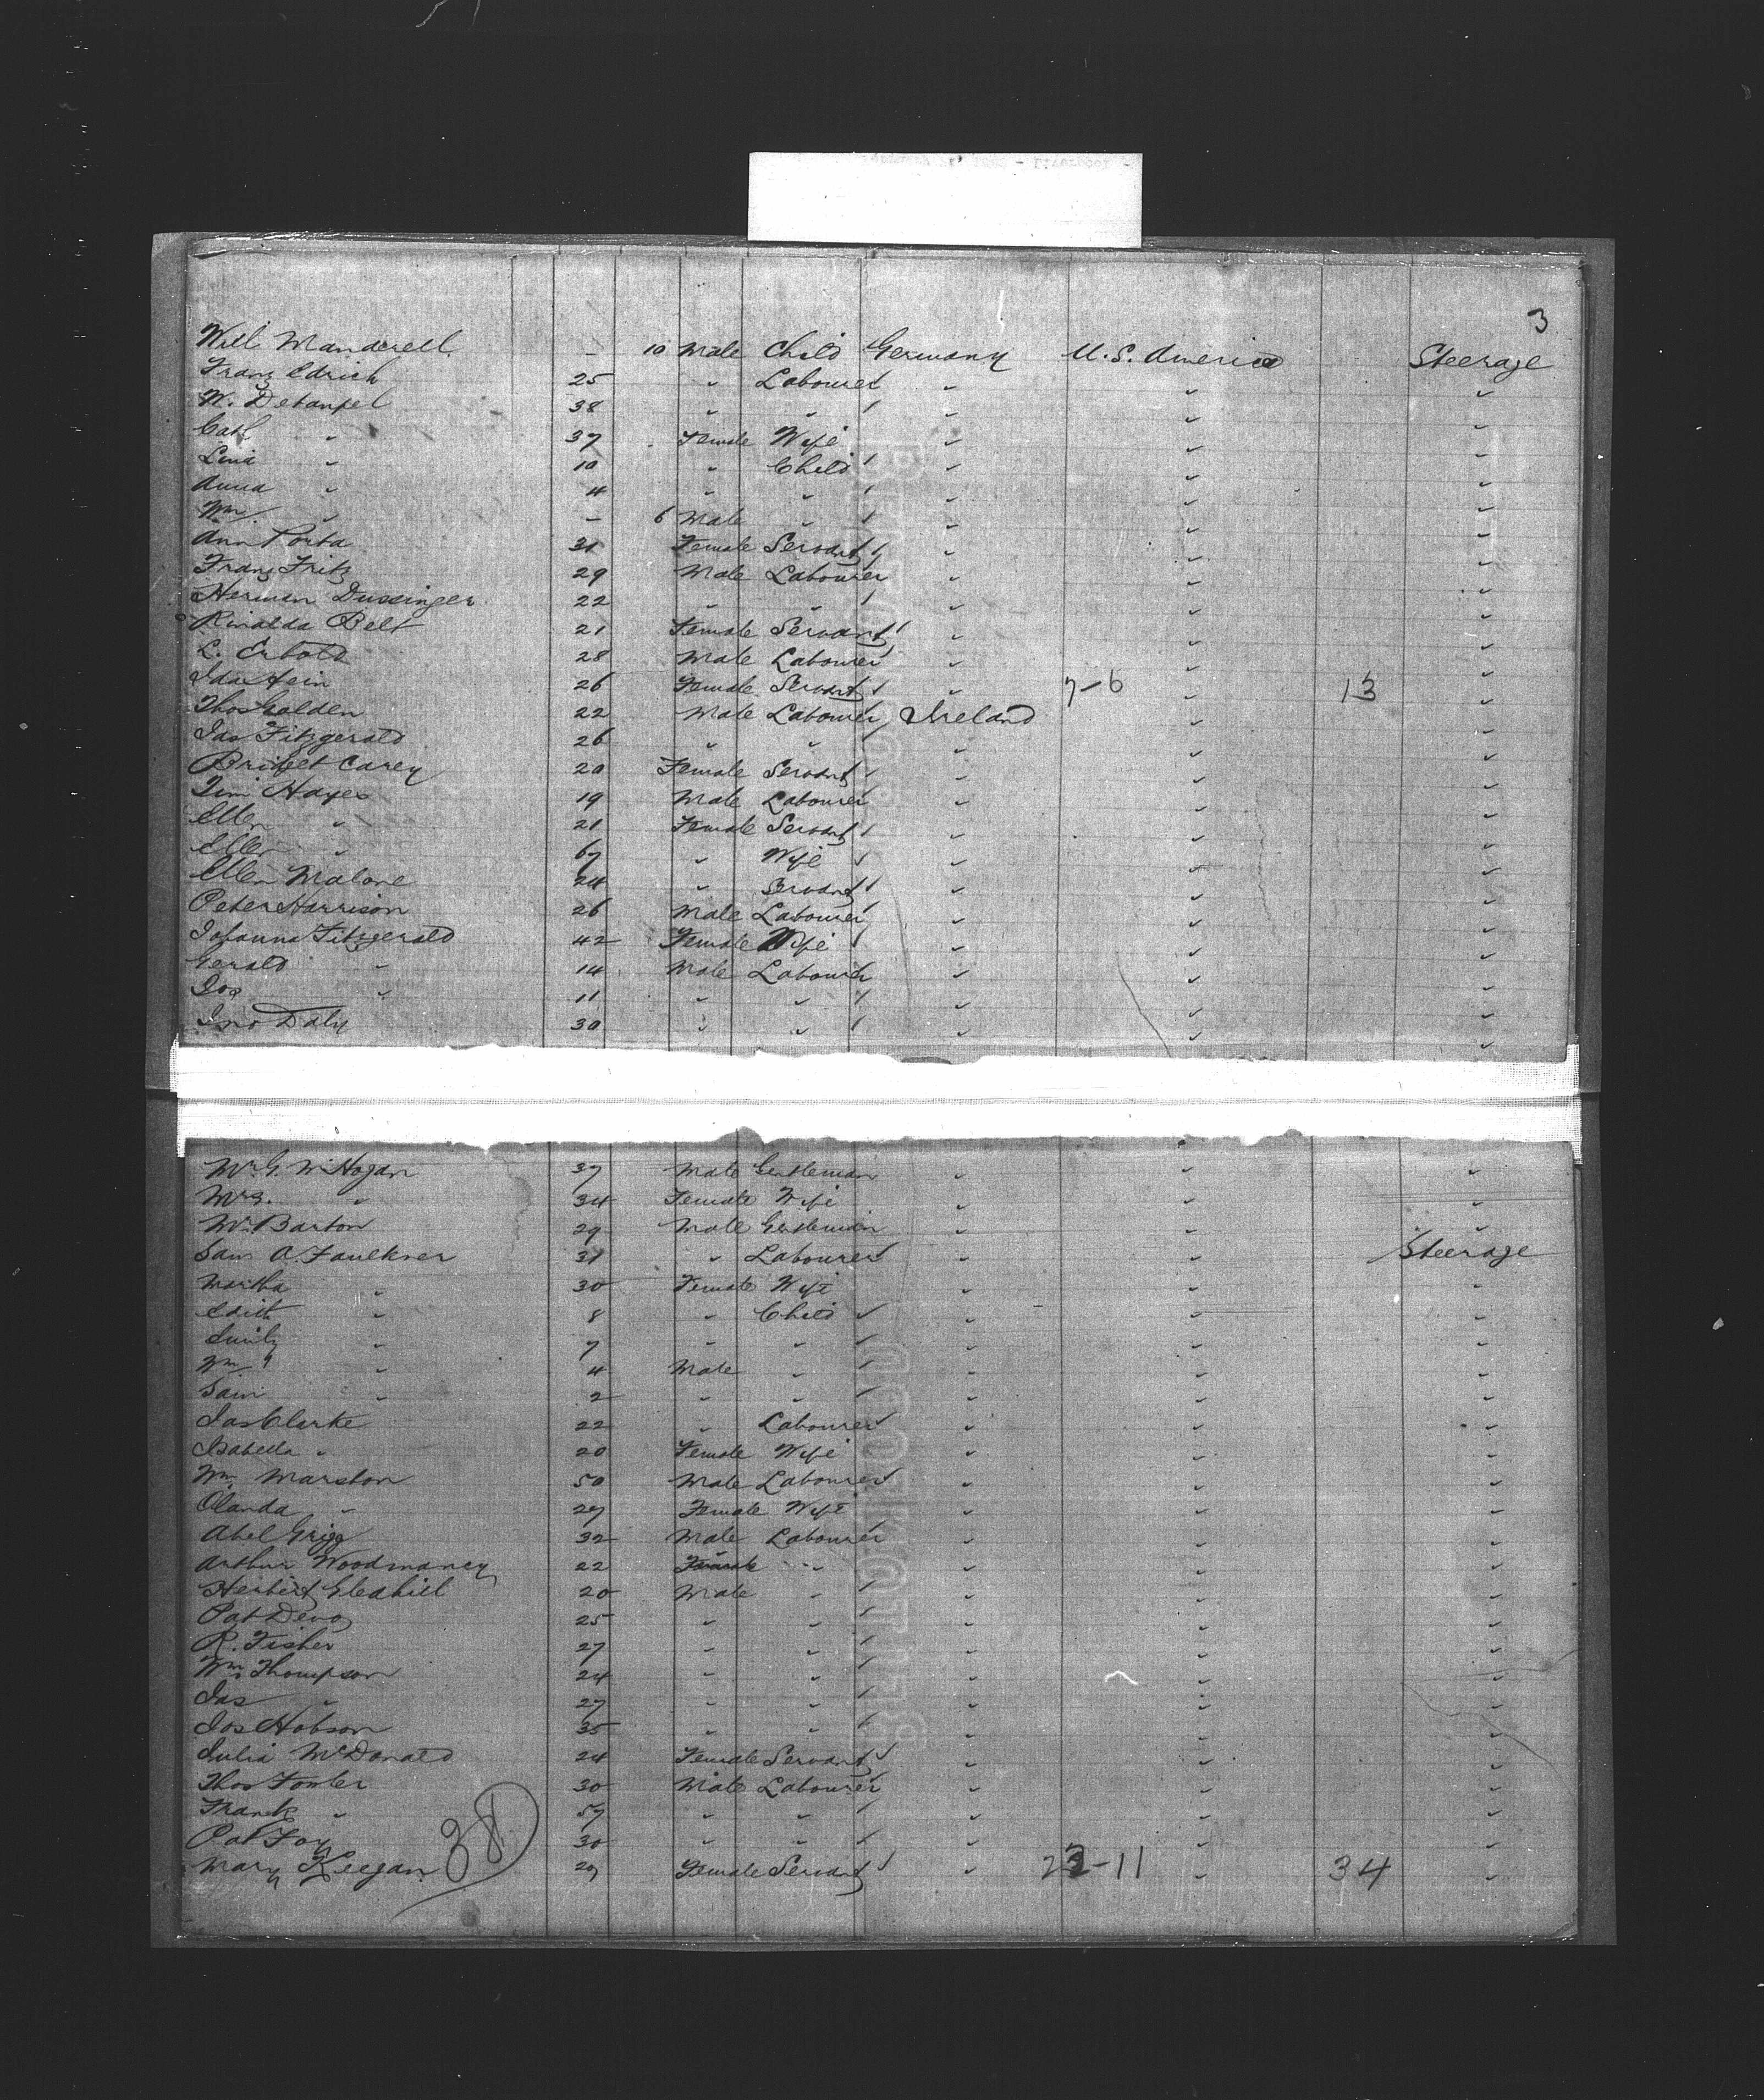 3
Will Manderell – 10 Male Child Germany U.S. America Steerage
Franz Edrich 25 " Labourer " " "
W. Detampel 38 " " " " "
Cath " 37 Female Wife " " "
Lina " 10 " Child " " "
Anna " 4 " " " " "
Wm " – 6 Male " " " "
Ann Porta 31 Female Servant " " "
Franz Fritz 29 Male Labourer " " "
Herman Dussinger 22 " " " " "
Rinalda Belt 21 Female Servant " " "
L. Erbold 28 Male Labourer " " "
Ida Hein 26 Female Servant " 7-6 " 13 "
Thos Golden 22 Male Labourer Ireland " "
Jas Fitzgerald 26 " " " " "
Bridget Carey 20 Female Servant " " "
Tim Hayes 19 Male Labourer " " "
Ellen " 21 Female Servant " " "
Ellen " 67 " Wife " " "
Ellen Malone 24 " Servant " " "
Peter Harrison 26 Male Labourer " " "
Johanna Fitzgerald 42 Female Wife " " "
Gerald " 14 Male Labourer " " "
Jos " 11 " " " " "
Jno Daly 30 " " " " "
Mr G. W. Hogan 37 Male Gentleman " " "
Mrs. " 34 Female Wife " " "
Mr Barton 29 Male Gentleman " " "
Sam A. Faulkner 31 " Labourer " " Steerage
Martha " 30 Female Wife " " "
Edith " 8 " Child " " "
Emily " 7 " " " " "
Wm " 4 Male " " " "
Sam " 2 " " " " "
Jas Clarke 22 " Labourer " " "
Isabella " 20 Female Wife " " "
Wm Marston 50 Male Labourer " " "
Olanda " 27 Female Wife " " "
Abel Grigg 32 Male Labourer " " "
Arthur Woodmancy 22 Female " " " "
Herbert Gledhill 20 Male " " " "
Pat Devoy 25 " " " " "
R. Fisher 27 " " " " "
Wm Thompson 24 " " " " "
Jas " 27 " " " " "
Jos Hobson 35 " " " " "
Julia McDonald 24 Female Servant " " "
Thos Fowler 30 Male Labourer " " "
Frank " 57 " " " " "
Pat Foy 30 " " " " "
Mary Keegan 29 Female Servant " 23-11 " 34 "
38